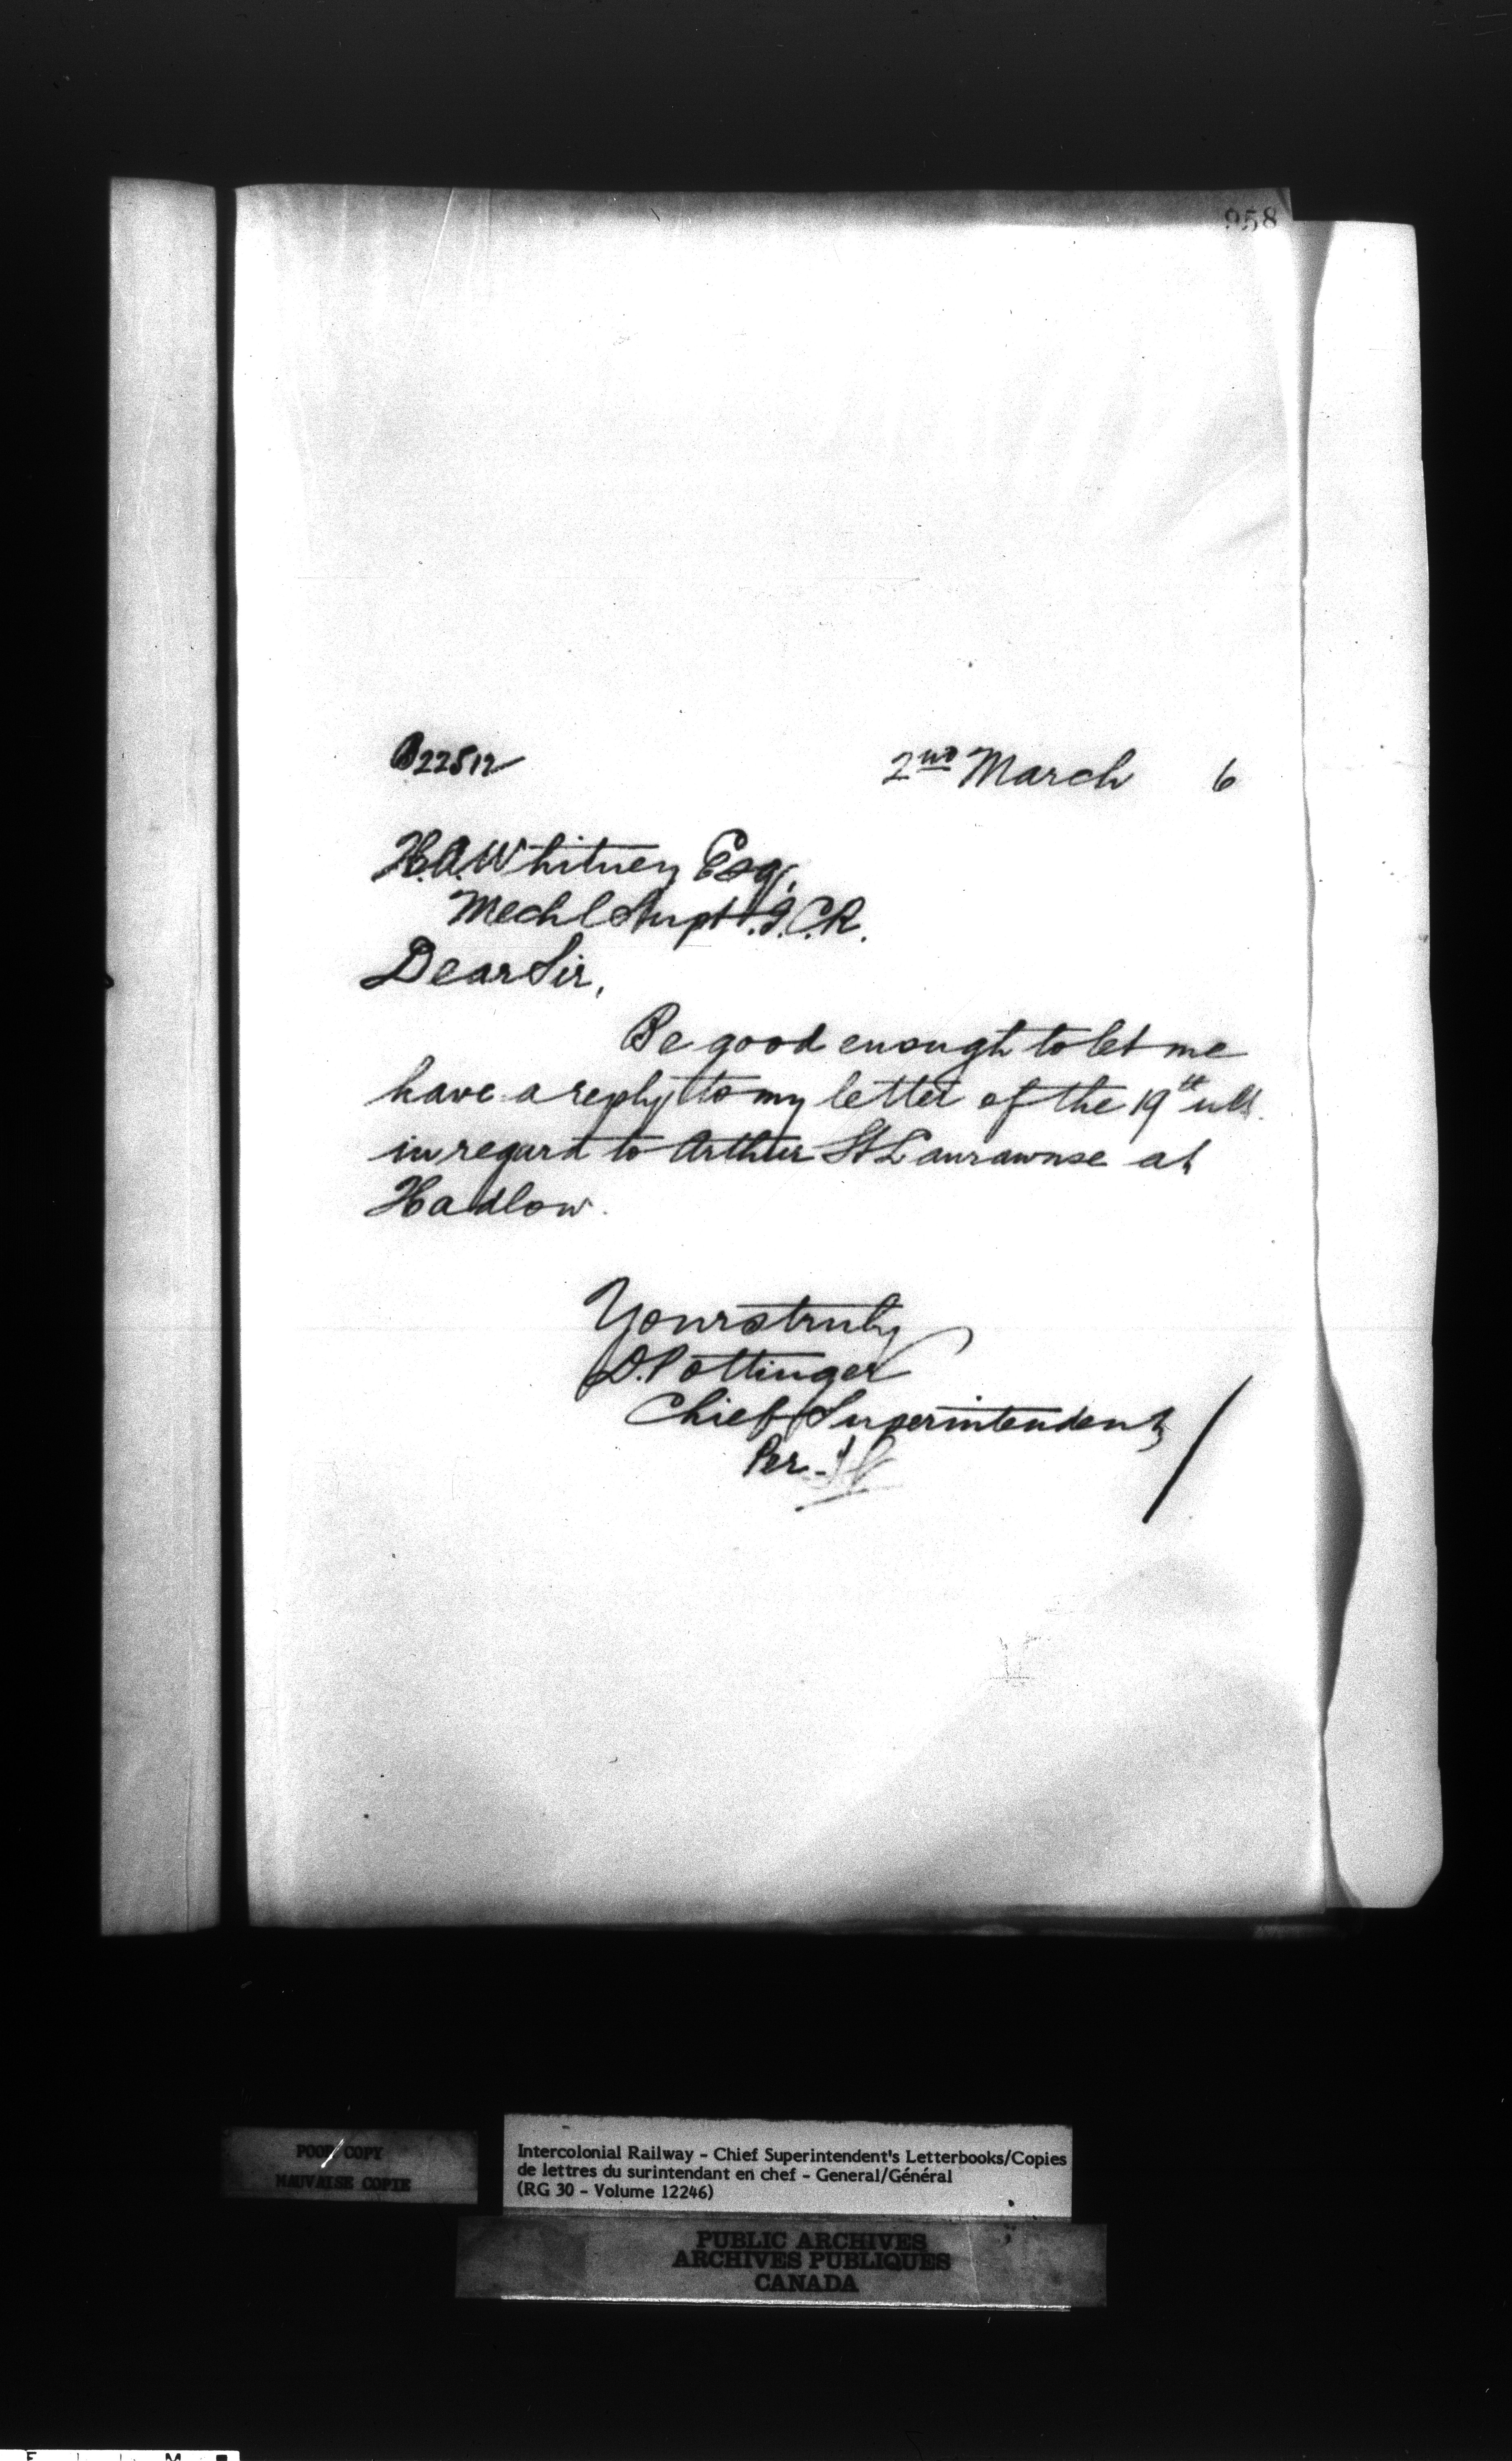 958
B22512
2nd March 6
H.A. Whitney Esq.
Mechl Supt. I.C.R.
Dear Sir,
Be good enough to let me
have a reply to my letter of the 19th ult.
in regard to Arthur St Laurawnse at
Hadlow.
Yours truly
D. Pottinger
Chief Superintendent
Per.
POOR COPY
MAUVAISE COPIE
Intercolonial Railway - Chief Superintendent's Letterbooks/Copies
de lettres du surintendant en chef - General/Général
(RG 30 - Volume 12246)
PUBLIC ARCHIVES
ARCHIVES PUBLIQUES
CANADA